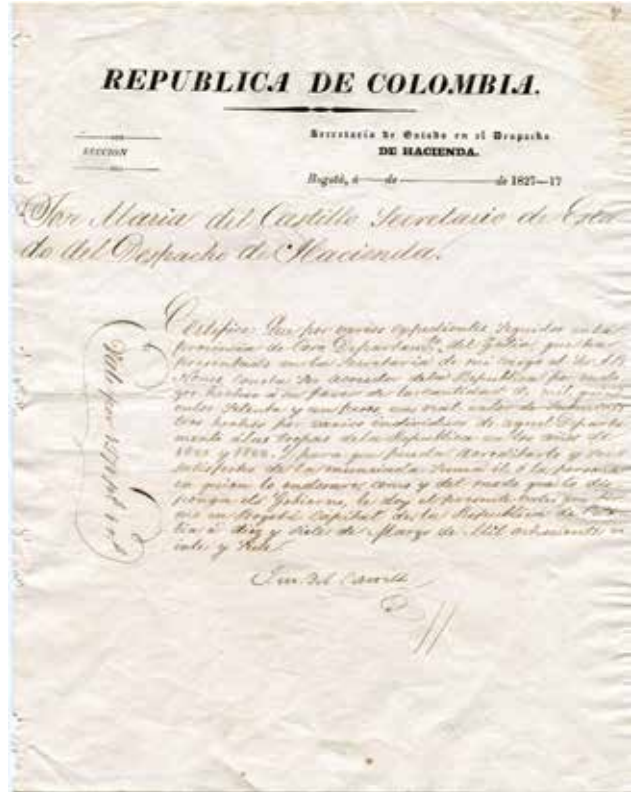 REPUBLICA DE COLOMBIA.
SECCION
Secretaría de Estado en el Despacho
DE HACIENDA.
Bogotá, á de de 1827—17
José Maria del Castillo Secretario de Esta-
do del Despacho de Hacienda.
Certifico: Que por varios expedientes seguidos en la
provincia de Coro Departamto. del Zulia, que ha
presentado en la Secretaria de mi cargo el Sr.
consta ser acreedor de la Republica por
hechos a su favor de la cantidad de mil
setenta y un pesos, un real, valor de
hechos por varios individuos de aquel Departa-
mento á las tropas de la Republica en los años de
1821 y 1822. Y para que pueda acreditarlo y ser
satisfecho de la enunciada suma él, ó la persona
en quien lo endosare, como y del modo que lo dis-
ponga el Gobierno, le doy el presente
en Bogotá Capital de la Republica de
á diez y siete de Marzo de mil ochocientos
y siete
J. M. del Castillo